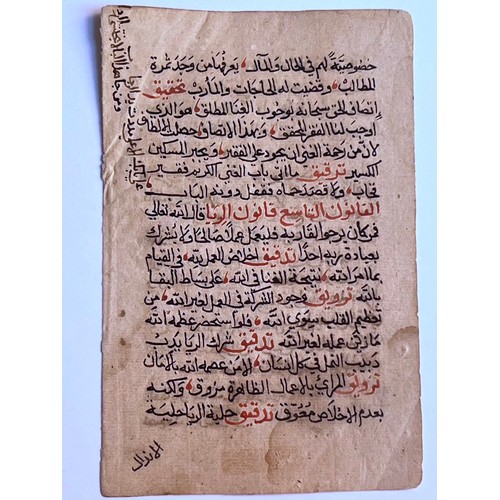 خصوصية لهم في الحال والمآل يعرفها من وجد ثمرة
المطالب وقضيت له الحاجات والمآرب تحقيق
اتصاف الحق سبحانه بوجوب الغنا المطلق هو الذي
اوجب لنا الفقر المحقق وبهذا الاتصاف حصل
لان من رحمة الغني ان يجود على الفقير ويجبر المسكين
الكسير تدقيق ما اتى باب الغني الكريم فقير
فخاب ولا قصد حماه فقفل دونه الباب
القانون التاسع قانون الريا قال الله تعالى
فمن كان يرجوا لقا ربه فليعمل عملا صالحا ولا يشرك
بعبادة ربه احدا تدقيق اخلاص العمل لله في القيام
بما امر الله نتيجة الفنا في الله على بساط البقا
بالله تزويق وجود الشركة في العمل لغير الله من
تعظيم القلب سوى الله فلو استحضر عظمة الله
ما زكى عمله لغير الله تدقيق شرك الريا يدب
دبيب النمل في كل انسان الا من عصمه الله بالايمان
تزويق المرائي بالاعمال الظاهرة مزوق ولكنه
بعدم الاخلاص معوق تدقيق حلية الريا حلية
الانذال